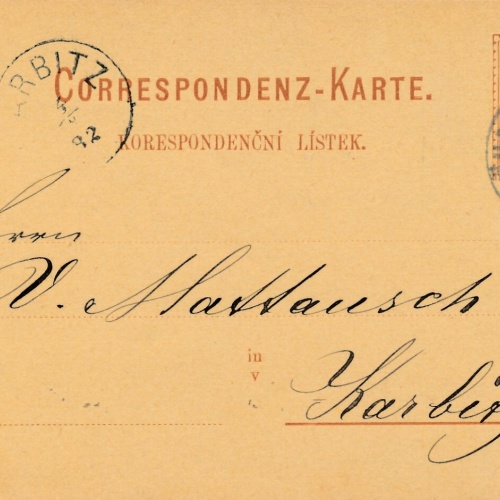 ARBITZ
82
CORRESPONDENZ-KARTE.
KORESPONDENČNÍ LÍSTEK.
Herrn
V. Mattausch
in
v
Karbitz